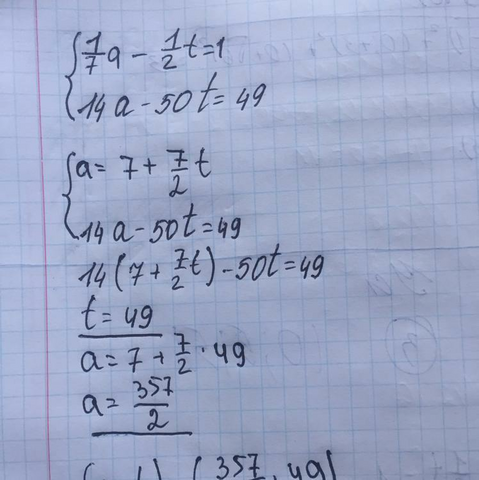 1/7 a - 1/2 t = 1
14a - 50t = 49
a = 7 + 7/2 t
14a - 50t = 49
14(7 + 7/2 t) - 50t = 49
t = 49
a = 7 + 7/2 · 49
a = 357/2
357 49